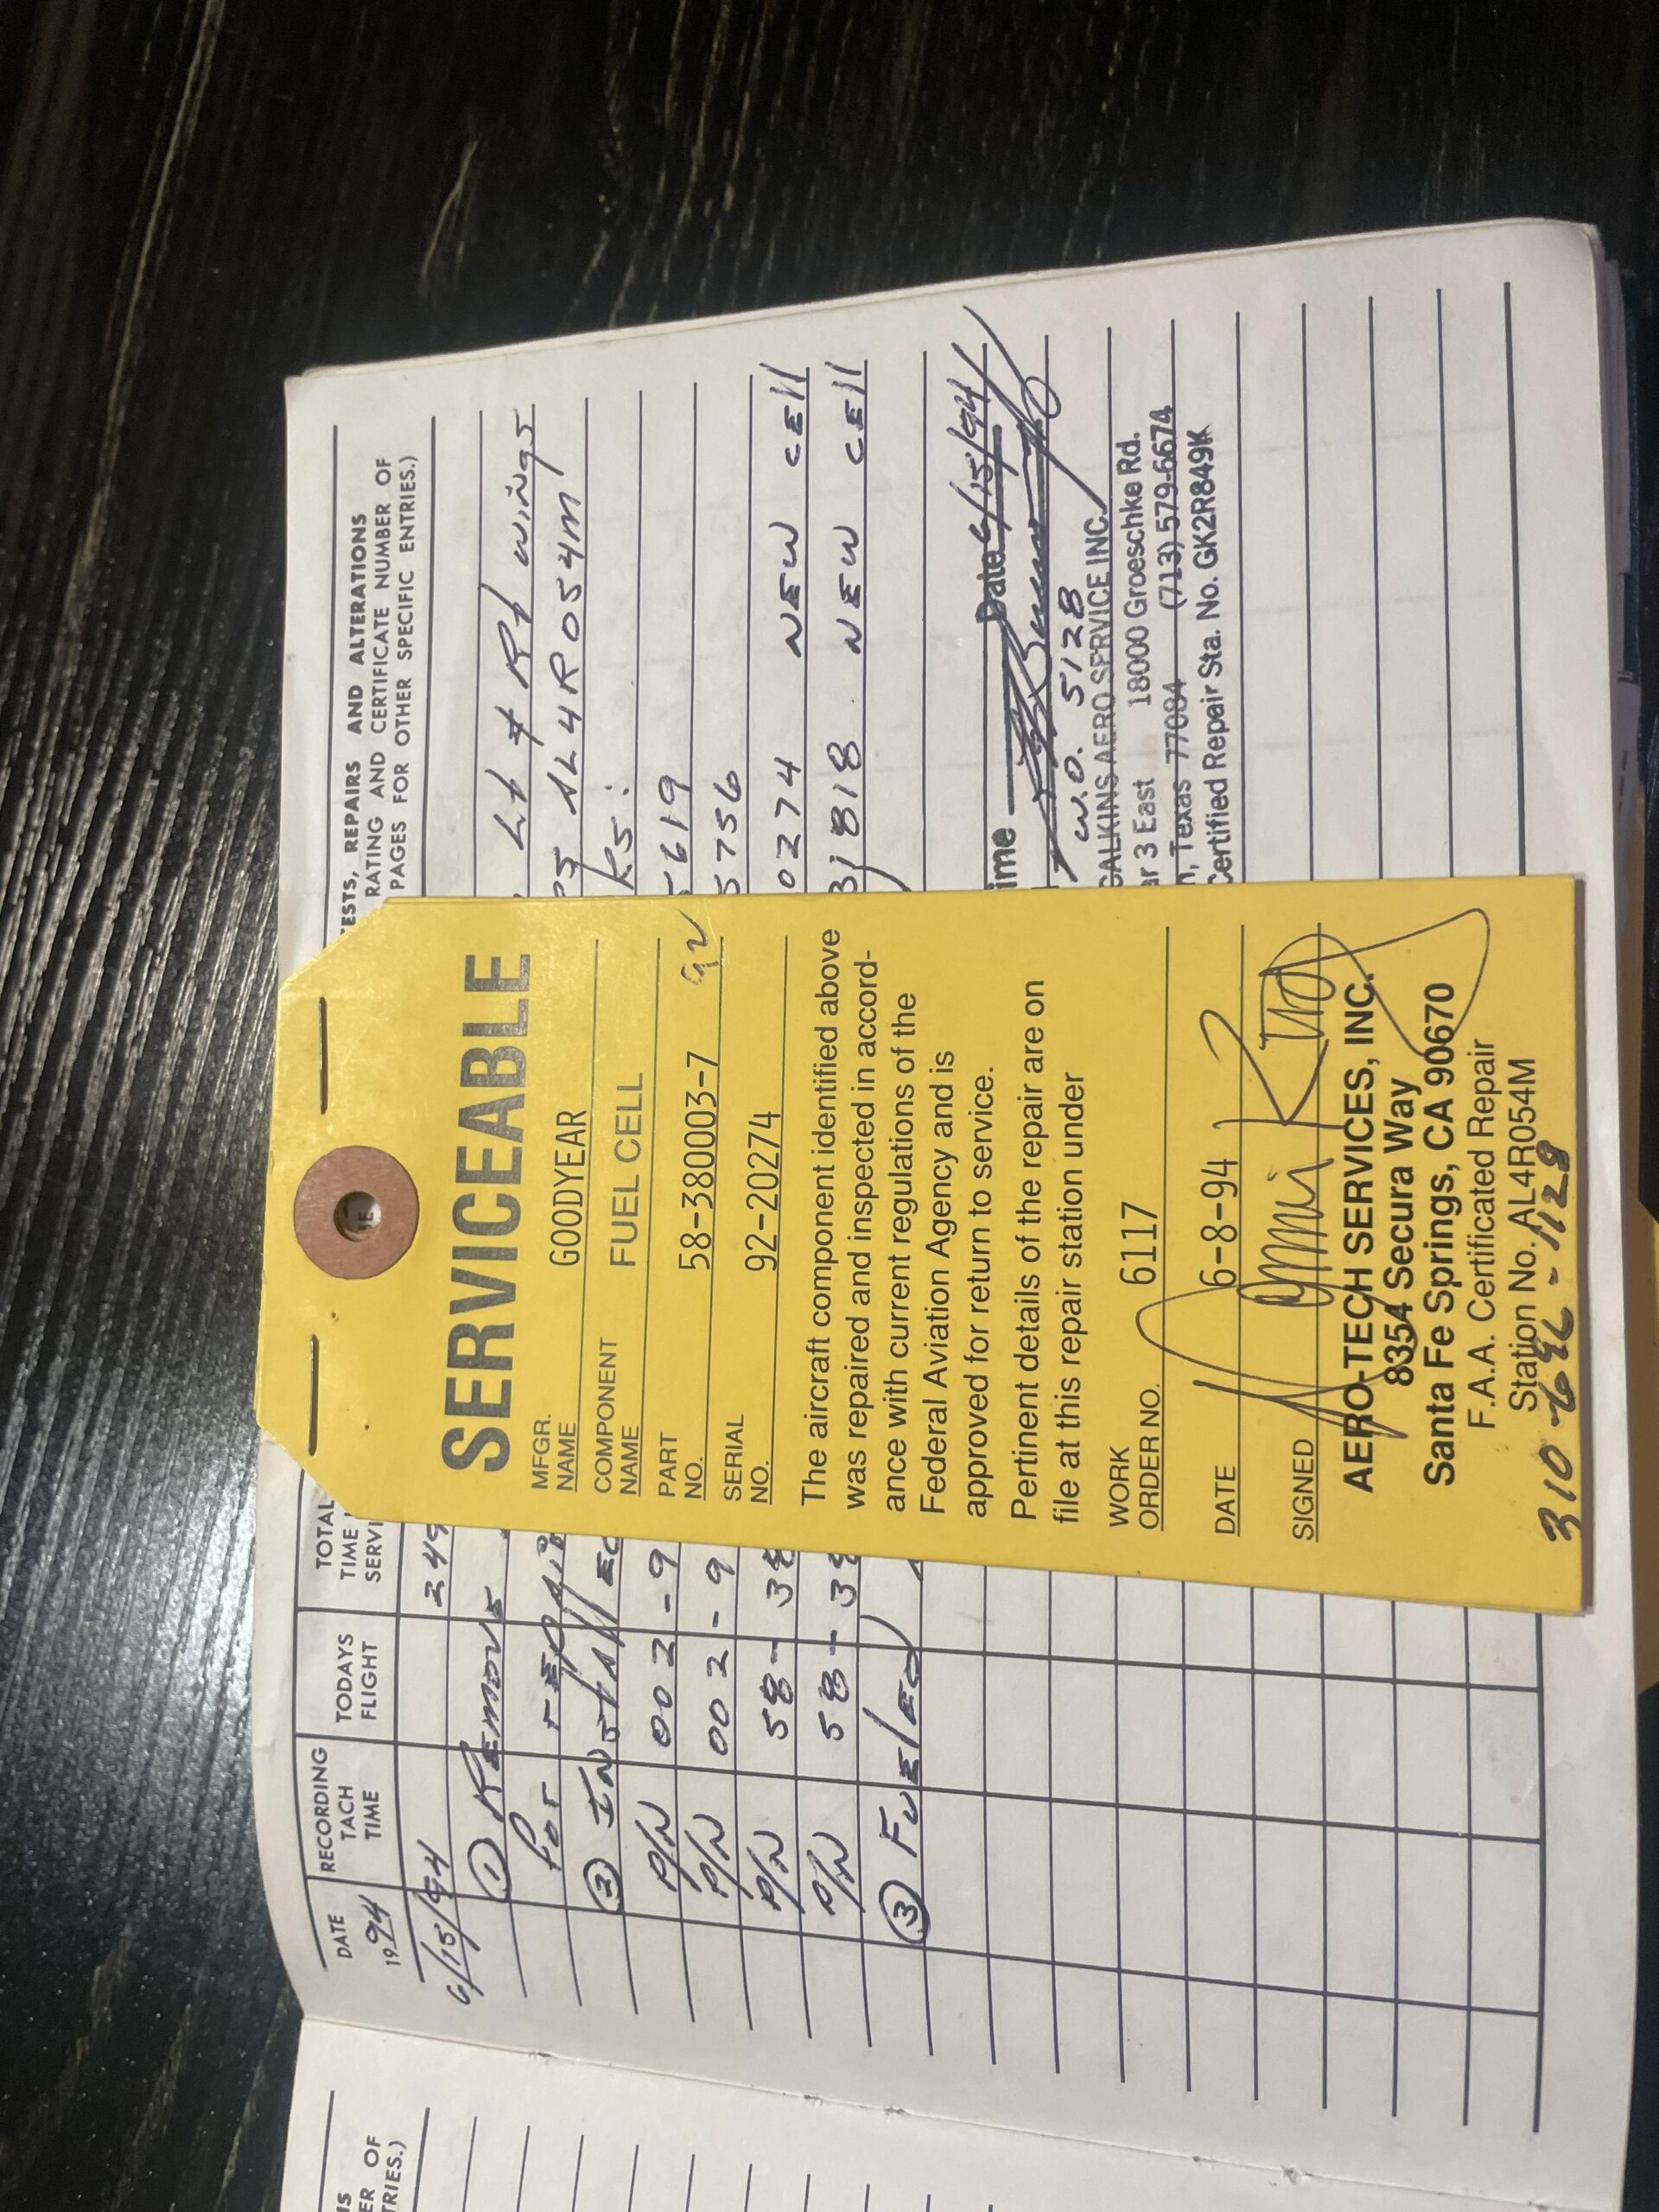 TESTS, REPAIRS AND ALTERATIONS
RATING AND CERTIFICATE NUMBER OF
PAGES FOR OTHER SPECIFIC ENTRIES.)
DATE
1994
RECORDING
TACH
TIME
TODAYS
FLIGHT
TOTAL
TIME
SERVI
6/15/94 249
① Remove Lt & Rt wings
for repair AL4R054M
② Installed ks:
P/N 002-9 5619
P/N 002-9 5756
P/N 58-38 0274 NEW CELL
P/N 58-38 31818 NEW CELL
③ Fueled
ime Date 6/15/94
W.O. 5128
CALKINS AERO SERVICE INC.
ar 3 East 18000 Groeschke Rd.
n, Texas 77084 (713) 579-6674
Certified Repair Sta. No. GK2R849K
SERVICEABLE
MFGR.
NAME GOODYEAR
COMPONENT
NAME FUEL CELL
PART
NO. 58-380003-7
SERIAL
NO. 92-20274
The aircraft component identified above
was repaired and inspected in accord-
ance with current regulations of the
Federal Aviation Agency and is
approved for return to service.
Pertinent details of the repair are on
file at this repair station under
WORK
ORDER NO. 6117
DATE 6-8-94
SIGNED
AERO-TECH SERVICES, INC.
8354 Secura Way
Santa Fe Springs, CA 90670
F.A.A. Certificated Repair
Station No. AL4R054M
310-696-1128
IS
ER OF
TRIES.)